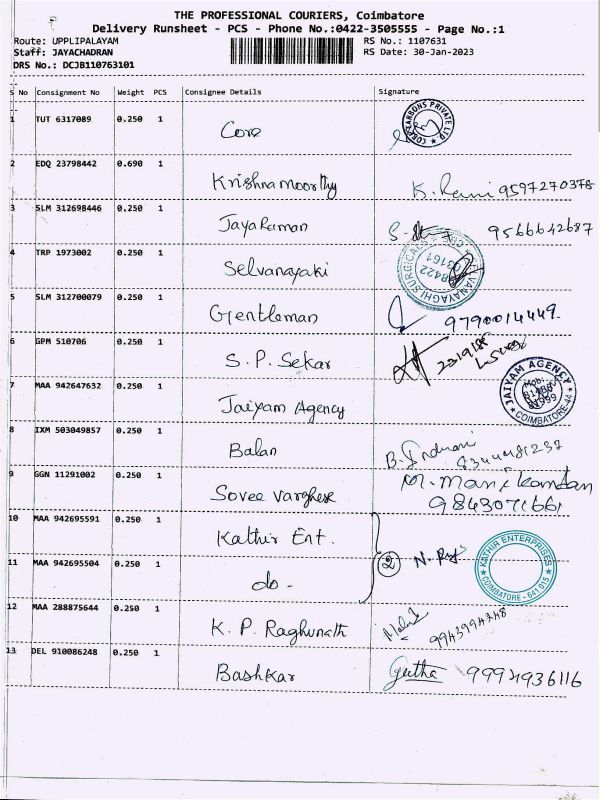 THE PROFESSIONAL COURIERS, Coimbatore
Delivery Runsheet - PCS - Phone No.:0422-3505555 - Page No.:1
Route: UPPLIPALAYAM RS No.: 1107631
Staff: JAYACHADRAN RS Date: 30-Jan-2023
DRS No.: DCJB110763101
S No Consignment No Weight PCS Consignee Details Signature
1 TUT 6317089 0.250 1 Core
2 EDQ 23798442 0.690 1 Krishnamoorthy K. Rani 9597270378
3 SLM 312698446 0.250 1 JayaRaman 9566642687
4 TRP 1973002 0.250 1 Selvanayaki
5 SLM 312700079 0.250 1 Gentleman 9790014449
6 GPM 510706 0.250 1 S.P. Sekar
7 MAA 942647632 0.250 1 Jaiyam Agency JAIYAM AGENCY COIMBATORE-44
8 IXM 503049857 0.250 1 Balan B. Indrani 8344481237
9 GGN 11291002 0.250 1 Sovee varghese M. Manikandan
9843071661
10 MAA 942695591 0.250 1 Kathir Ent. KATHIR ENTERPRISES COIMBATORE - 641 015
11 MAA 942695504 0.250 1 do - 2
12 MAA 288875644 0.250 1 K. P. Raghunath 9943994248
13 DEL 910086248 0.250 1 Bashkar Geetha 9994936116